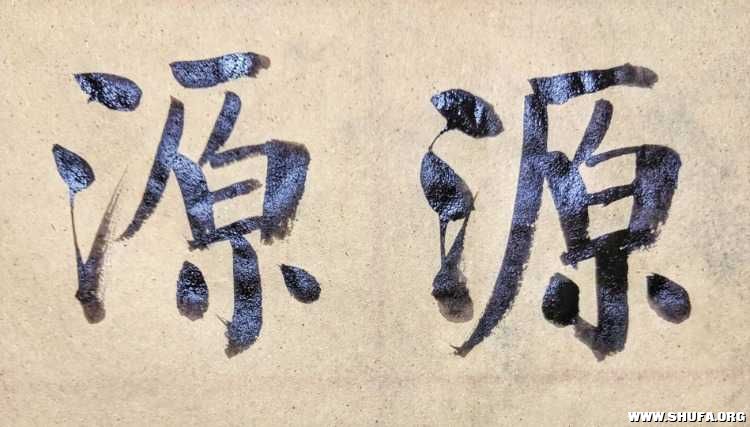 源 源
WWW.SHUFA.ORG